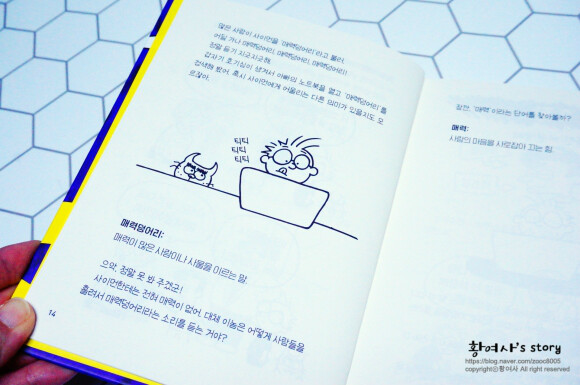 많은 사람이 사이먼을 '매력덩어리'라고 불러.
어딜 가나 매력덩어리, 매력덩어리, 매력덩어리!
정말 듣기 지긋지긋해.
갑자기 호기심이 생겨서 아빠의 노트북을 열고 '매력덩어리'를
검색해 봤어. 혹시 사이먼에게 어울리는 다른 의미가 있을지도 모
르잖아.
티티
티티
티티
매력덩어리:
매력이 많은 사람이나 사물을 이르는 말.
으악, 정말 못 봐 주겠군!
사이먼한테는 전혀 매력이 없어. 대체 이놈은 어떻게 사람들을
홀려서 매력덩어리라는 소리를 듣는 거야?
14
잠깐, '매력'이라는 단어를 찾아볼까?
매력:
사람의 마음을 사로잡아 끄는 힘.
황여사's story
https://blog.naver.com/zooo8005
copyrightⓒ황여사 All right reserved